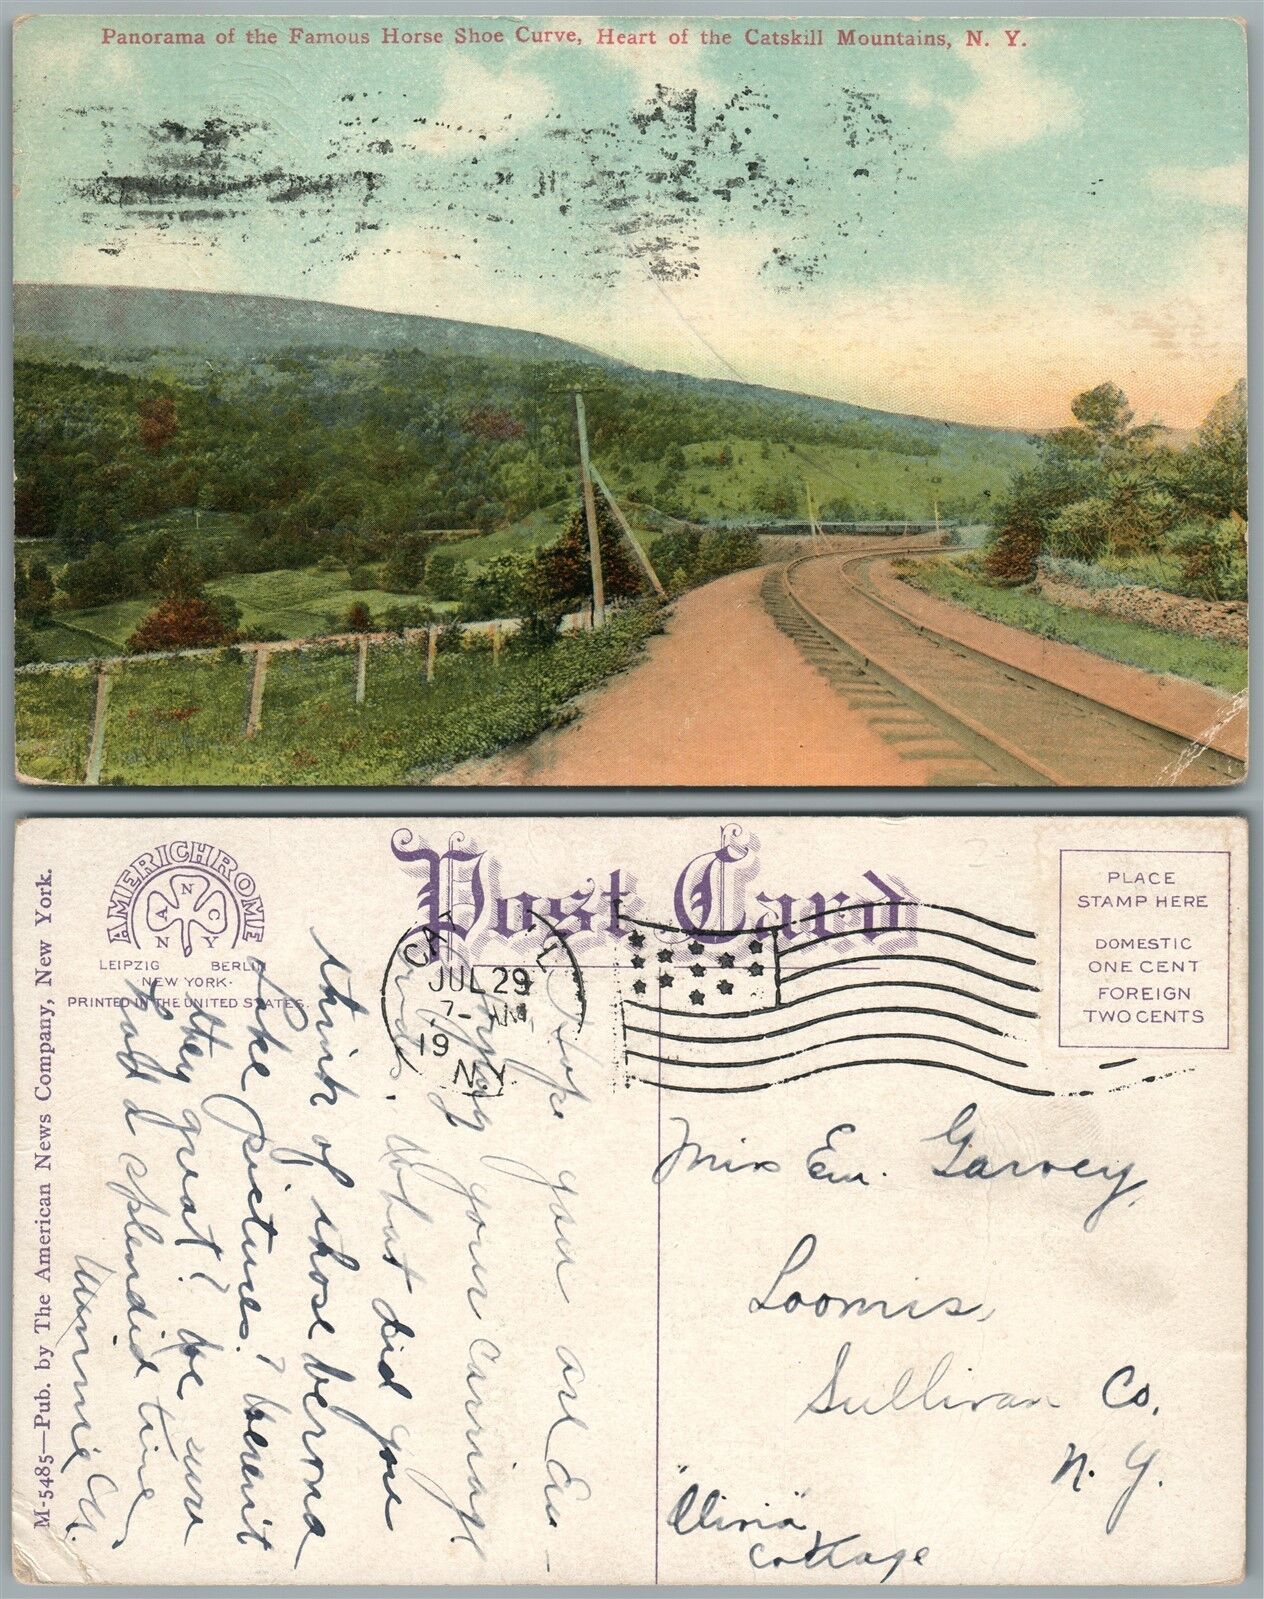 Panorama of the Famous Horse Shoe Curve, Heart of the Catskill Mountains, N. Y.
AMERICHROME
N
A C
N Y
LEIPZIG BERLIN
NEW YORK·
PRINTED IN THE UNITED STATES.
M-5485—Pub. by The American News Company, New York.
Post Card
PLACE
STAMP HERE
DOMESTIC
ONE CENT
FOREIGN
TWO CENTS
JUL 29
7-AM
19
N.Y.
Hope you are En-
joying your carriage
What did you
think of those
like pictures?
they great?
had a splendid time,
Minnie
Miss Em. Garvey,
Loomis,
Sullivan Co.
N. Y.
Cottage